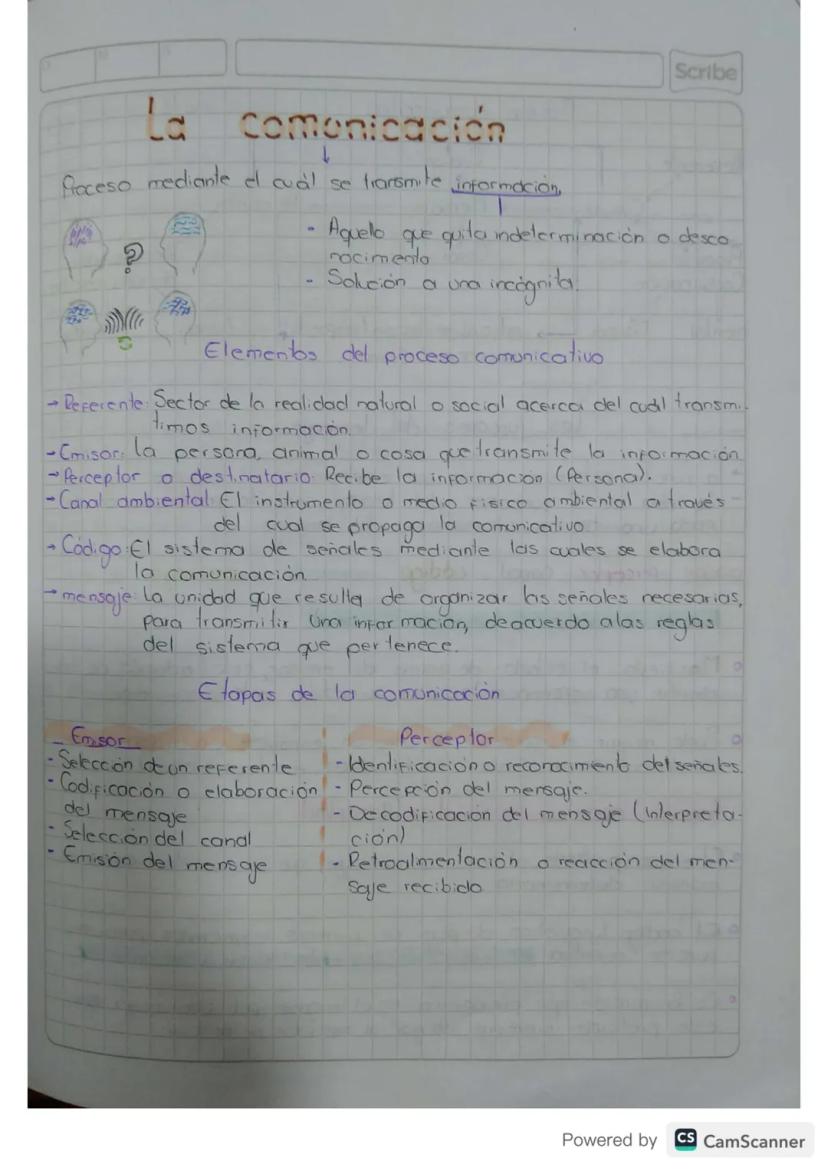 Scribe
La comunicación
Proceso mediante el cuál se transmite información,
- Aquello que quita indeterminación o desco
nocimento
- Solución a una incógnita.
?
Elementos del proceso comunicativo
→ Referente: Sector de la realidad natural o social acerca del cuál transmi-
timos información.
→ Emisor: la persona, animal o cosa que transmite la información
→ Perceptor o destinatario: Recibe la información (Persona).
→ Canal ambiental: El instrumento o medio fisico ambiental a través
del cual se propaga la comunicativo
→ Código: El sistema de señales mediante las cuales se elabora
la comunicación
→ mensaje: La unidad que resulta de organizar las señales necesarias,
para transmitir una información, deacuerdo a las reglas
del sistema que pertenece.
Etapas de la comunicación
Emisor
- Selección de un referente
- Codificación o elaboración
del mensaje
- Selección del canal
- Emisión del mensaje
Perceptor
- Identificación o reconocimiento del señales.
- Percepción del mensaje.
- Decodificación del mensaje (Interpreta-
ción)
- Retroalmentación o reacción del men-
saje recibido
Powered by CS CamScanner